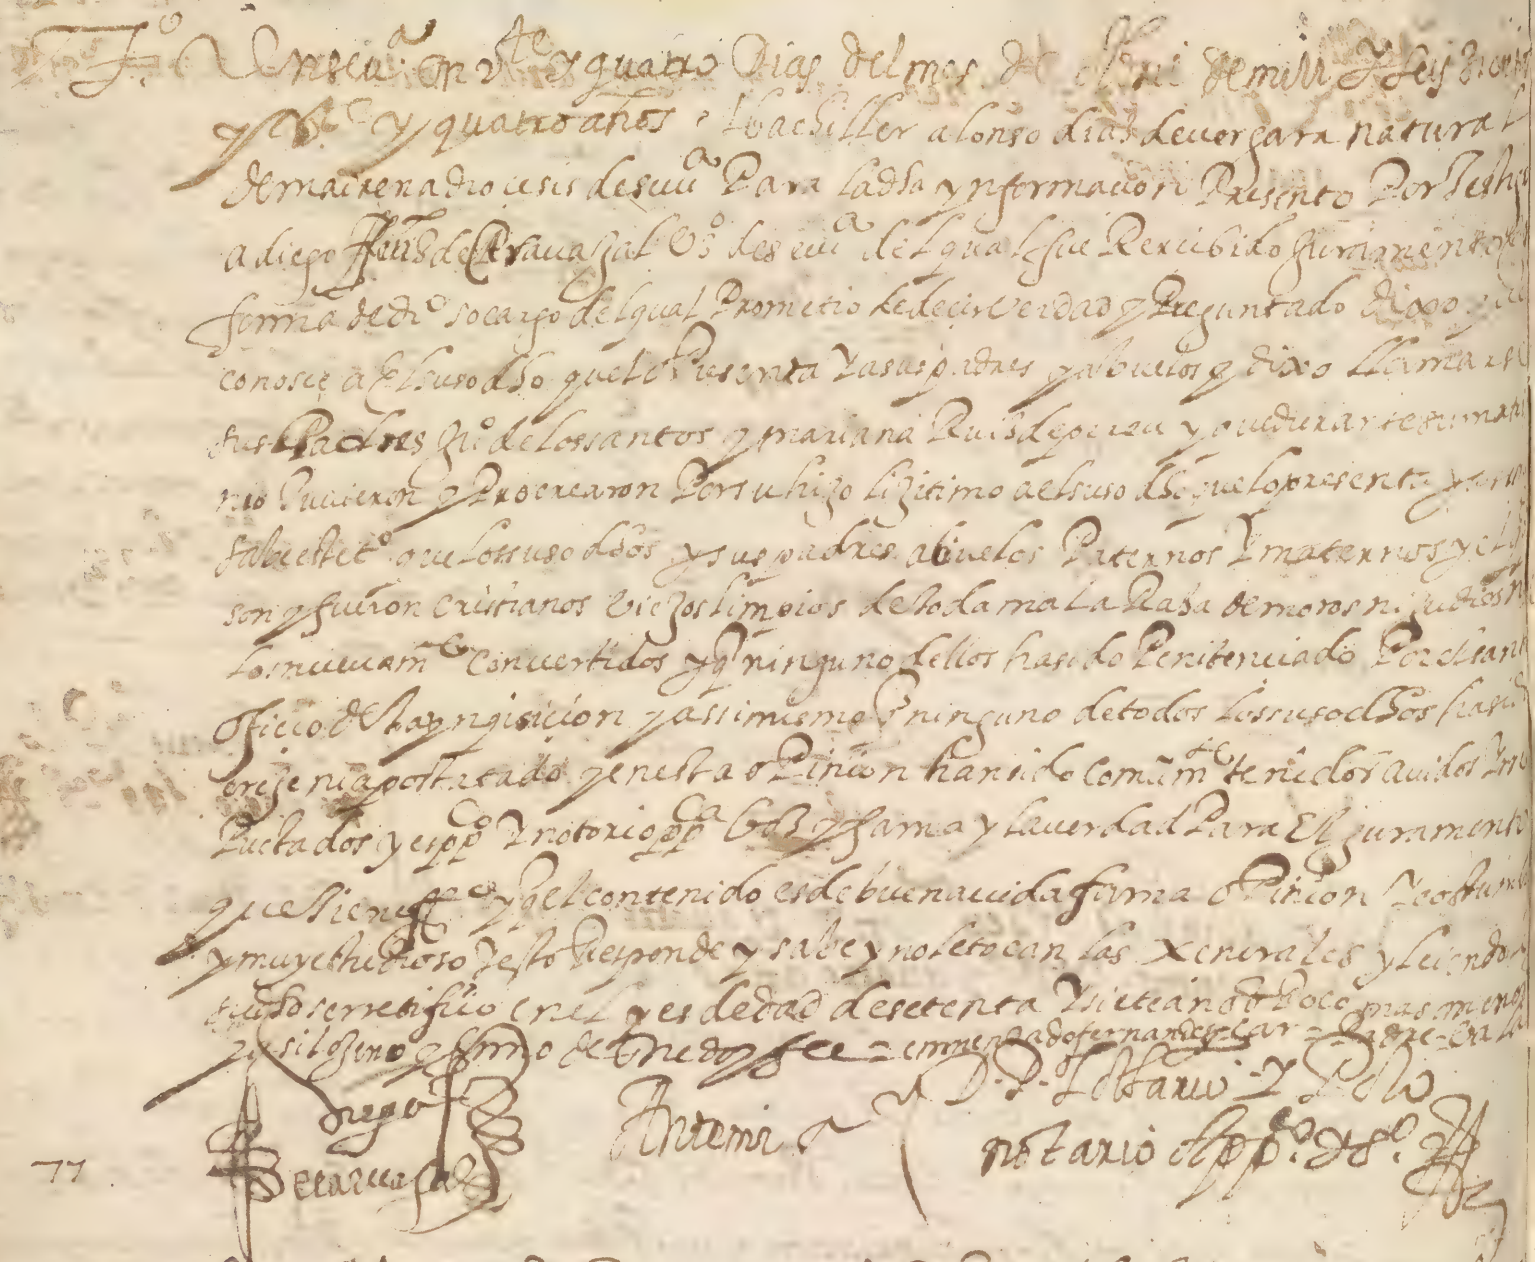 Tº En seuª en vte y quatro dias del mes de mill y seis
y quatro años el bachiller alonso dias de uergara natural
de mairena dioçesis de seuª Para la dha ynformaçion Presento Por testigo
a diego ferns de Carauajal Vº de seuiª del qual fue Reciuido Juramento en
forma de drº so cargo del qual Prometio de decir verdad y Preguntado dixo que
conosce a El suso dho que le Presenta y a sus padres y abuelos y dixo llamarse
sus Padres Juº de los santos y mariana Ruis de y que durante su matri
nio tuuieron y Procrearon Por su hijo lijitimo a el suso dho que lo presenta y
saue este tº que los suso dhos y sus padres abuelos Paternos y maternos y el
son y fueron cristianos viejos limpios de toda mala Rasa de moros ni judios ni
los nueuamte conuertidos y q ninguno dellos ha sido Penitenciado Por el sant
officio de la ynqisicion y assimismo q ninguno de todos los suso dhos ha sido
ereje ni apostatado y en esta oPinion han sido comunmte tenidos auidos y rre
Putados y es ppco y notorio ppca boz y fama y la uerdad Para El juramento
que tiene ffo y q el contenido es de buena uida fama oPinion y costumb
y muy estudioso y esto Responde y sabe y no le tocan las xenerales y leiendo
su dho se rretifico en el y es de edad de setenta y siete años Poco mas o menos
y lo firmo de que doy fee = emmendado fernandes = car = Padre =
diego f
De carauajal
Ante mi
notario appco
77